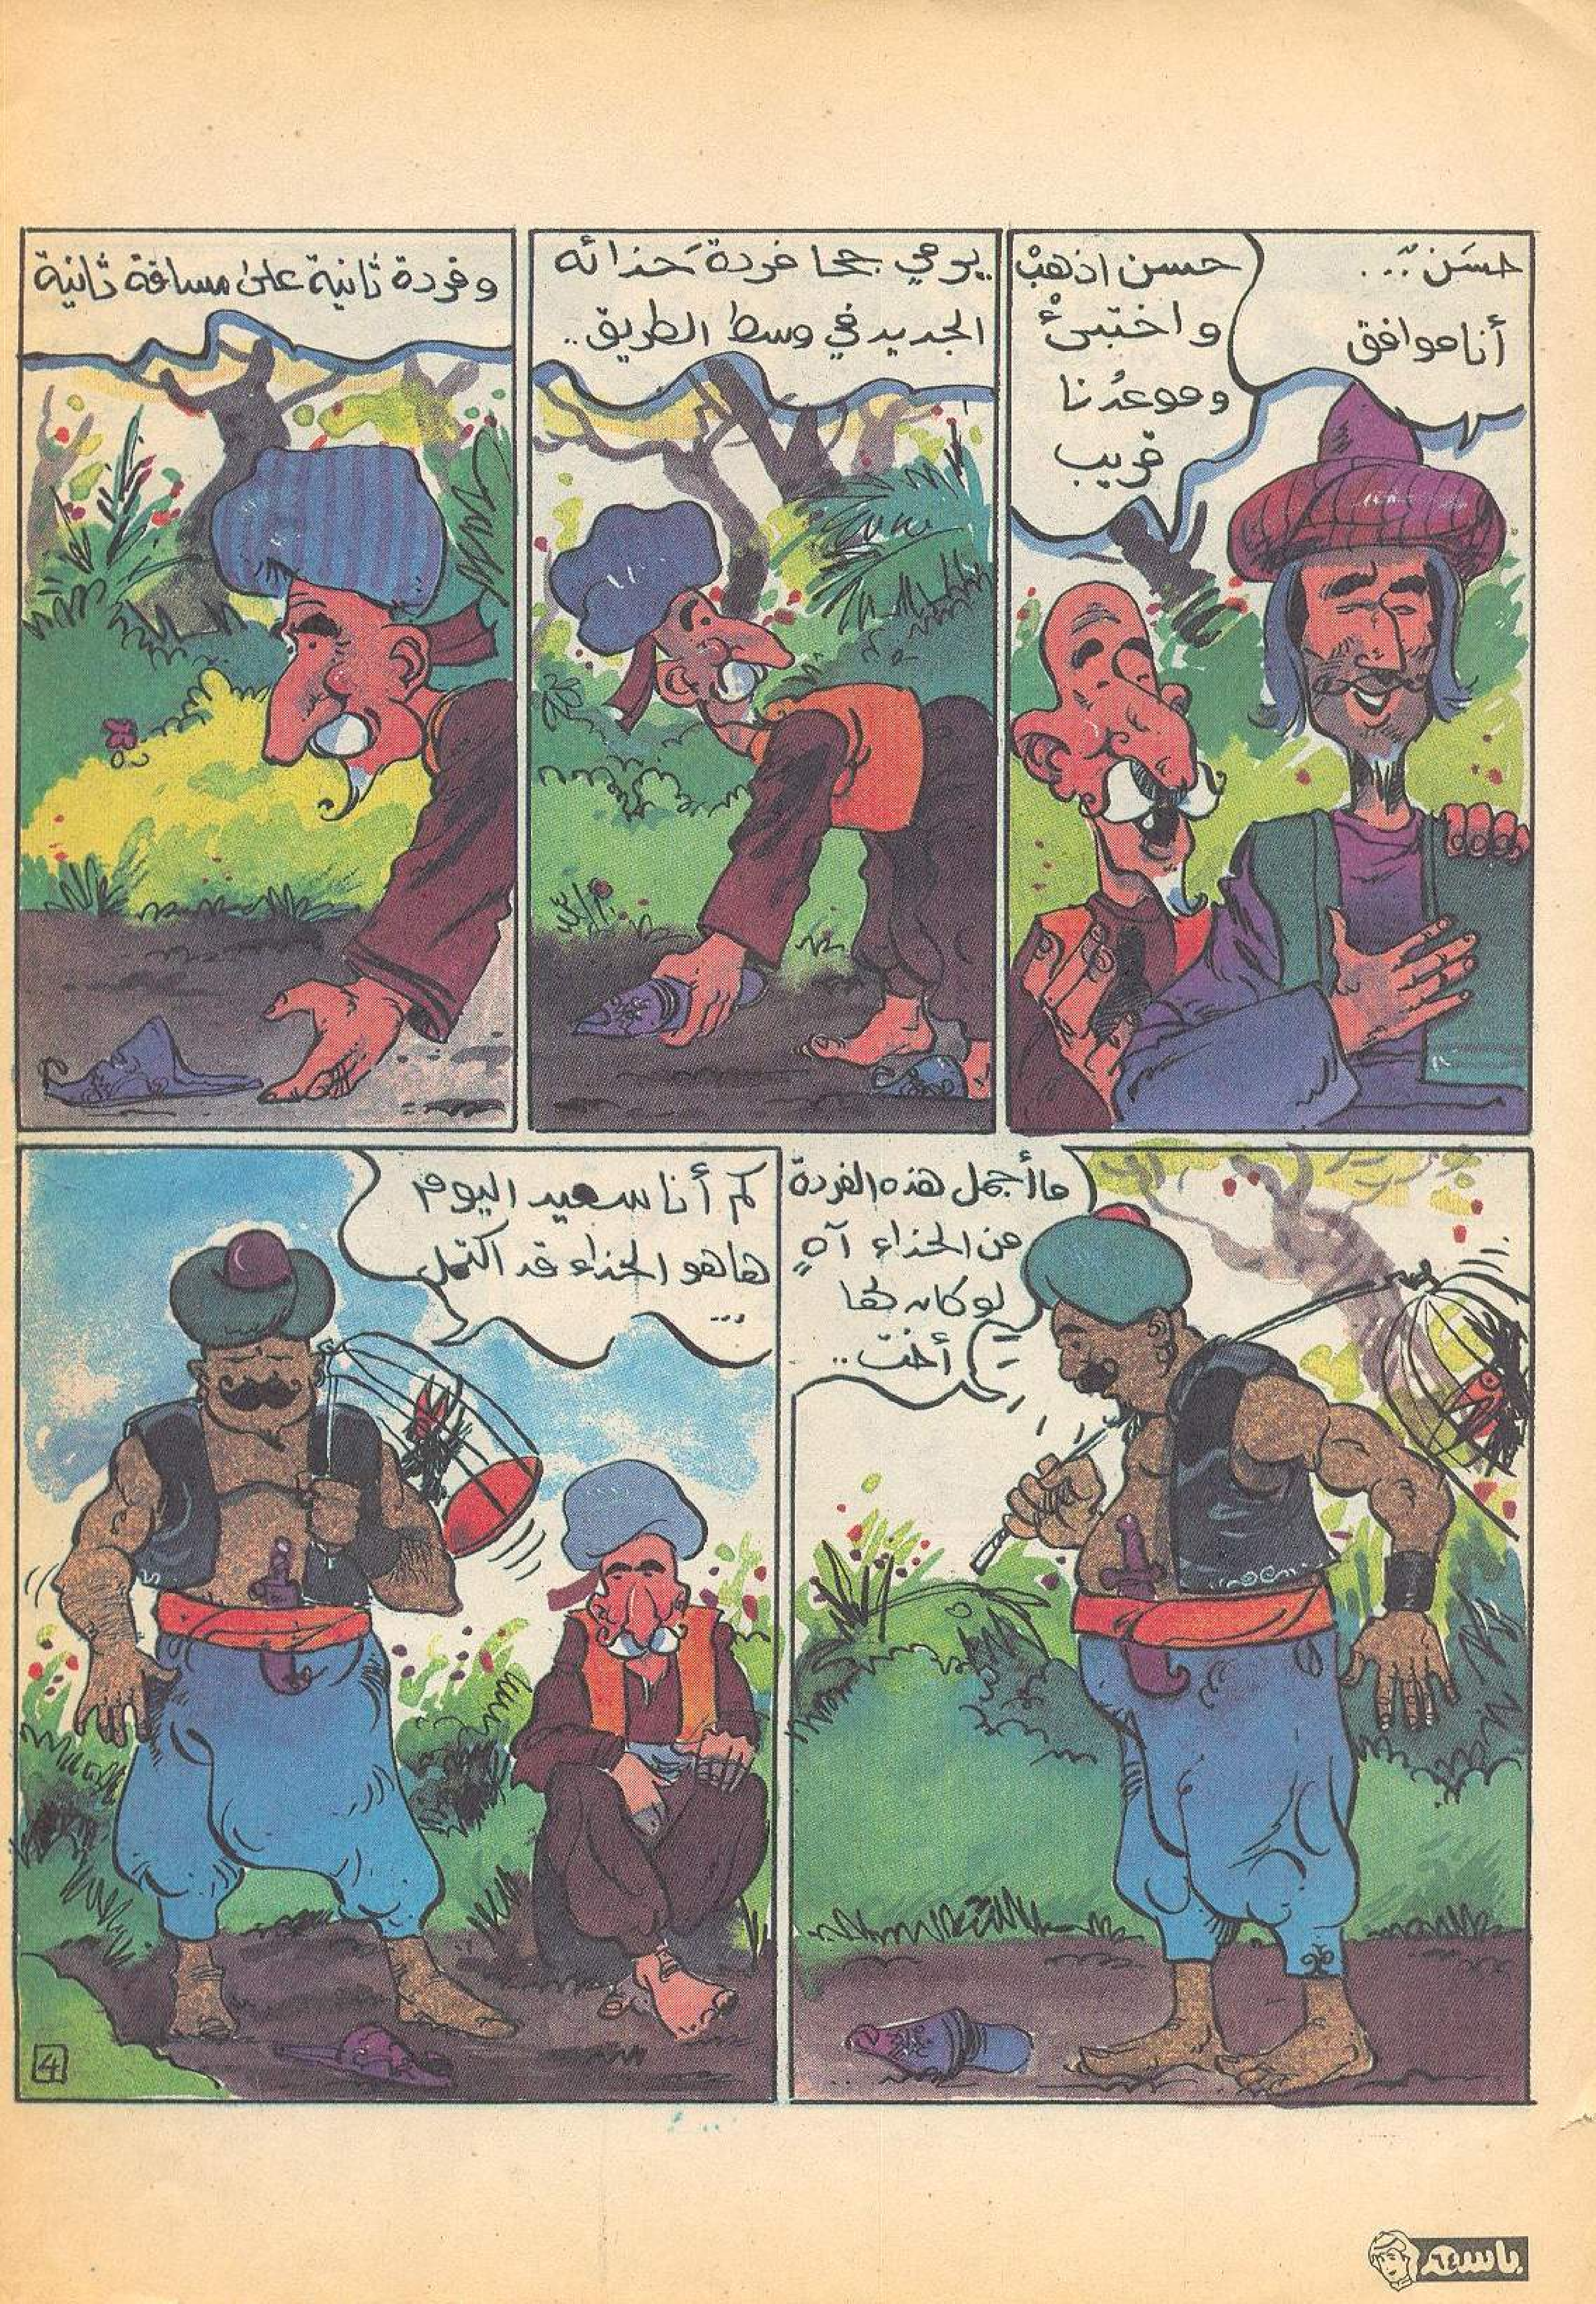 حسَن..ٌ..
أنا موافق
حسن اذهبْ
و اختبئْ
و موعدُنا
قريب
..يرمي جحا فردةَ حذائه
الجديد في وسط الطريق..
و فردة ثانية على مسافة ثانية
ما أجمل هذه الفردة
من الحذاء آهٍ
لو كان لها
أخت..
كم أنا سعيد اليوم
ها هو الحذاء قد اكتمل
...
4
باسم